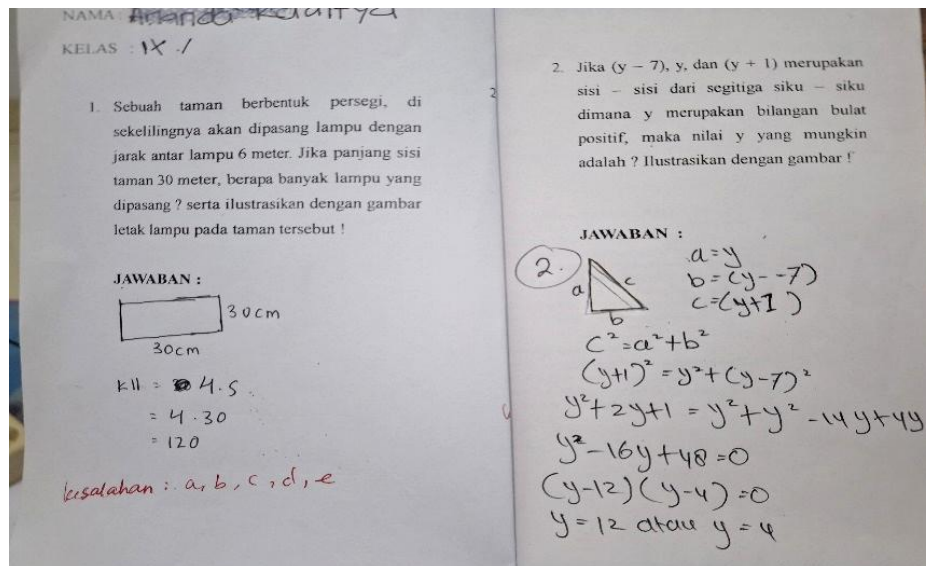 NAMA :
KELAS : IX . 1
1. Sebuah taman berbentuk persegi, di
sekelilingnya akan dipasang lampu dengan
jarak antar lampu 6 meter. Jika panjang sisi
taman 30 meter, berapa banyak lampu yang
dipasang ? serta ilustrasikan dengan gambar
letak lampu pada taman tersebut !
JAWABAN :
30cm
30cm
kll = 4.s
= 4.30
= 120
kesalahan : a, b, c, d, e
2
2. Jika (y – 7), y, dan (y + 1) merupakan
sisi – sisi dari segitiga siku – siku
dimana y merupakan bilangan bulat
positif, maka nilai y yang mungkin
adalah ? Ilustrasikan dengan gambar !
JAWABAN :
2.
a
c
b
a=y
b=(y--7)
c=(y+1)
c²=a²+b²
(y+1)²=y²+(y-7)²
y²+2y+1 = y²+y²-14y+4y
y²-16y+48=0
(y-12)(y-4)=0
y=12 atau y=4